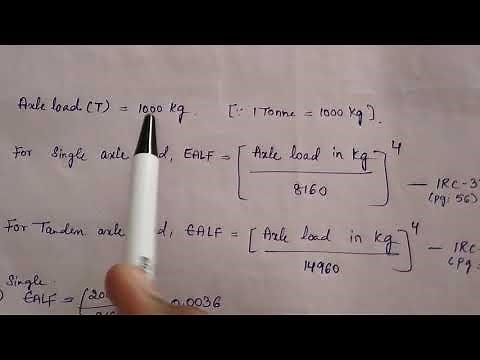 Axle load (T) = 1000 kg. [∵ 1 Tonne = 1000 kg].
For Single axle d, EALF = [Axle load in kg / 8160]⁴ — IRC-3
(pg: 56)
For Tandem axle d, EALF = [Axle load in kg / 14960]⁴ — IRC-
(pg
Single
EALF = 0.0036